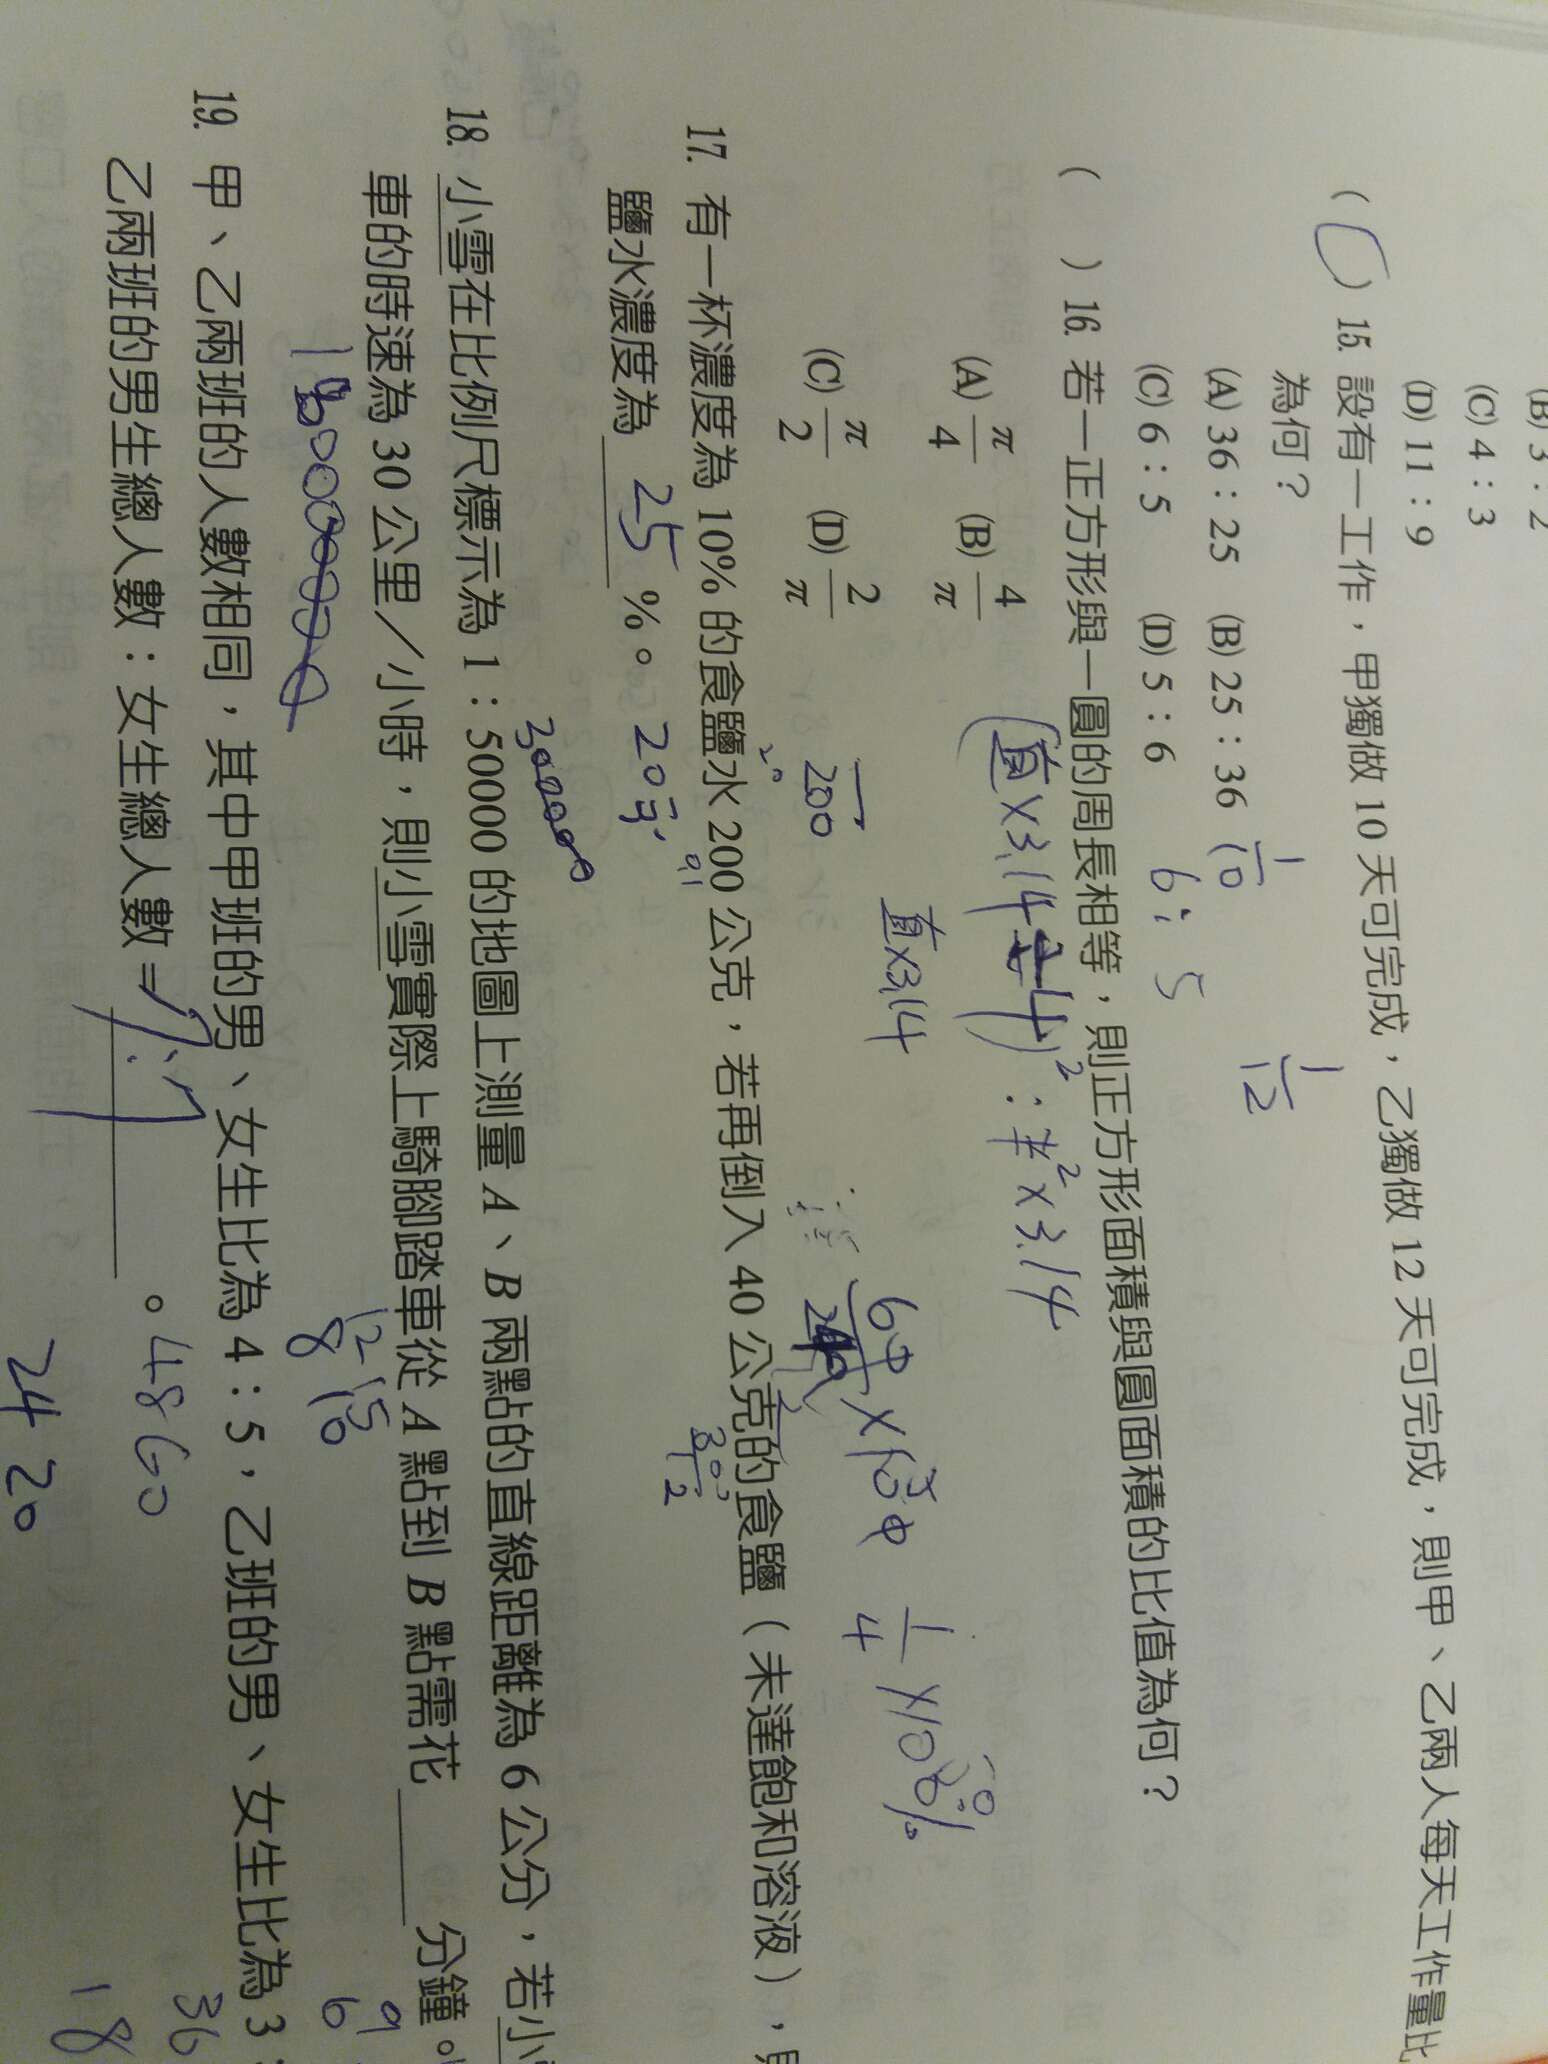 (B) 3：2
(C) 4：3
(D) 11：9
( C ) 15. 設有一工作，甲獨做 10 天可完成，乙獨做 12 天可完成，則甲、乙兩人每天工作量比
為何？
1/10
1/12
(A) 36：25 (B) 25：36
(C) 6：5 (D) 5：6
6：5
( ) 16. 若一正方形與一圓的周長相等，則正方形面積與圓面積的比值為何？
(直×3.14÷4)²：半²×3.14
(A) π/4 (B) 4/π
直×3.14
(C) π/2 (D) 2/π
200
1/4 ×100%
17. 有一杯濃度為 10% 的食鹽水 200 公克，若再倒入 40 公克的食鹽（未達飽和溶液），則
鹽水濃度為 25 %。
20克
18. 小雪在比例尺標示為 1：50000 的地圖上測量 A、B 兩點的直線距離為 6 公分，若小
300000
車的時速為 30 公里／小時，則小雪實際上騎腳踏車從 A 點到 B 點需花 分鐘。
12 15
8 10
9
6
19. 甲、乙兩班的人數相同，其中甲班的男、女生比為 4：5，乙班的男、女生比為 3：
乙兩班的男生總人數：女生總人數＝ 。
48 60
36
24 20
18